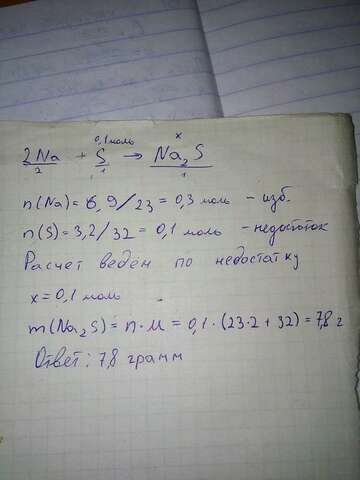 0,1 моль x
2Na + S → Na₂S
2 1 1
n(Na) = 6,9/23 = 0,3 моль - изб.
n(S) = 3,2/32 = 0,1 моль - недостаток
Расчет ведём по недостатку
x = 0,1 моль
m(Na₂S) = n·M = 0,1·(23·2+32) = 7,8 г
Ответ: 7,8 грамм